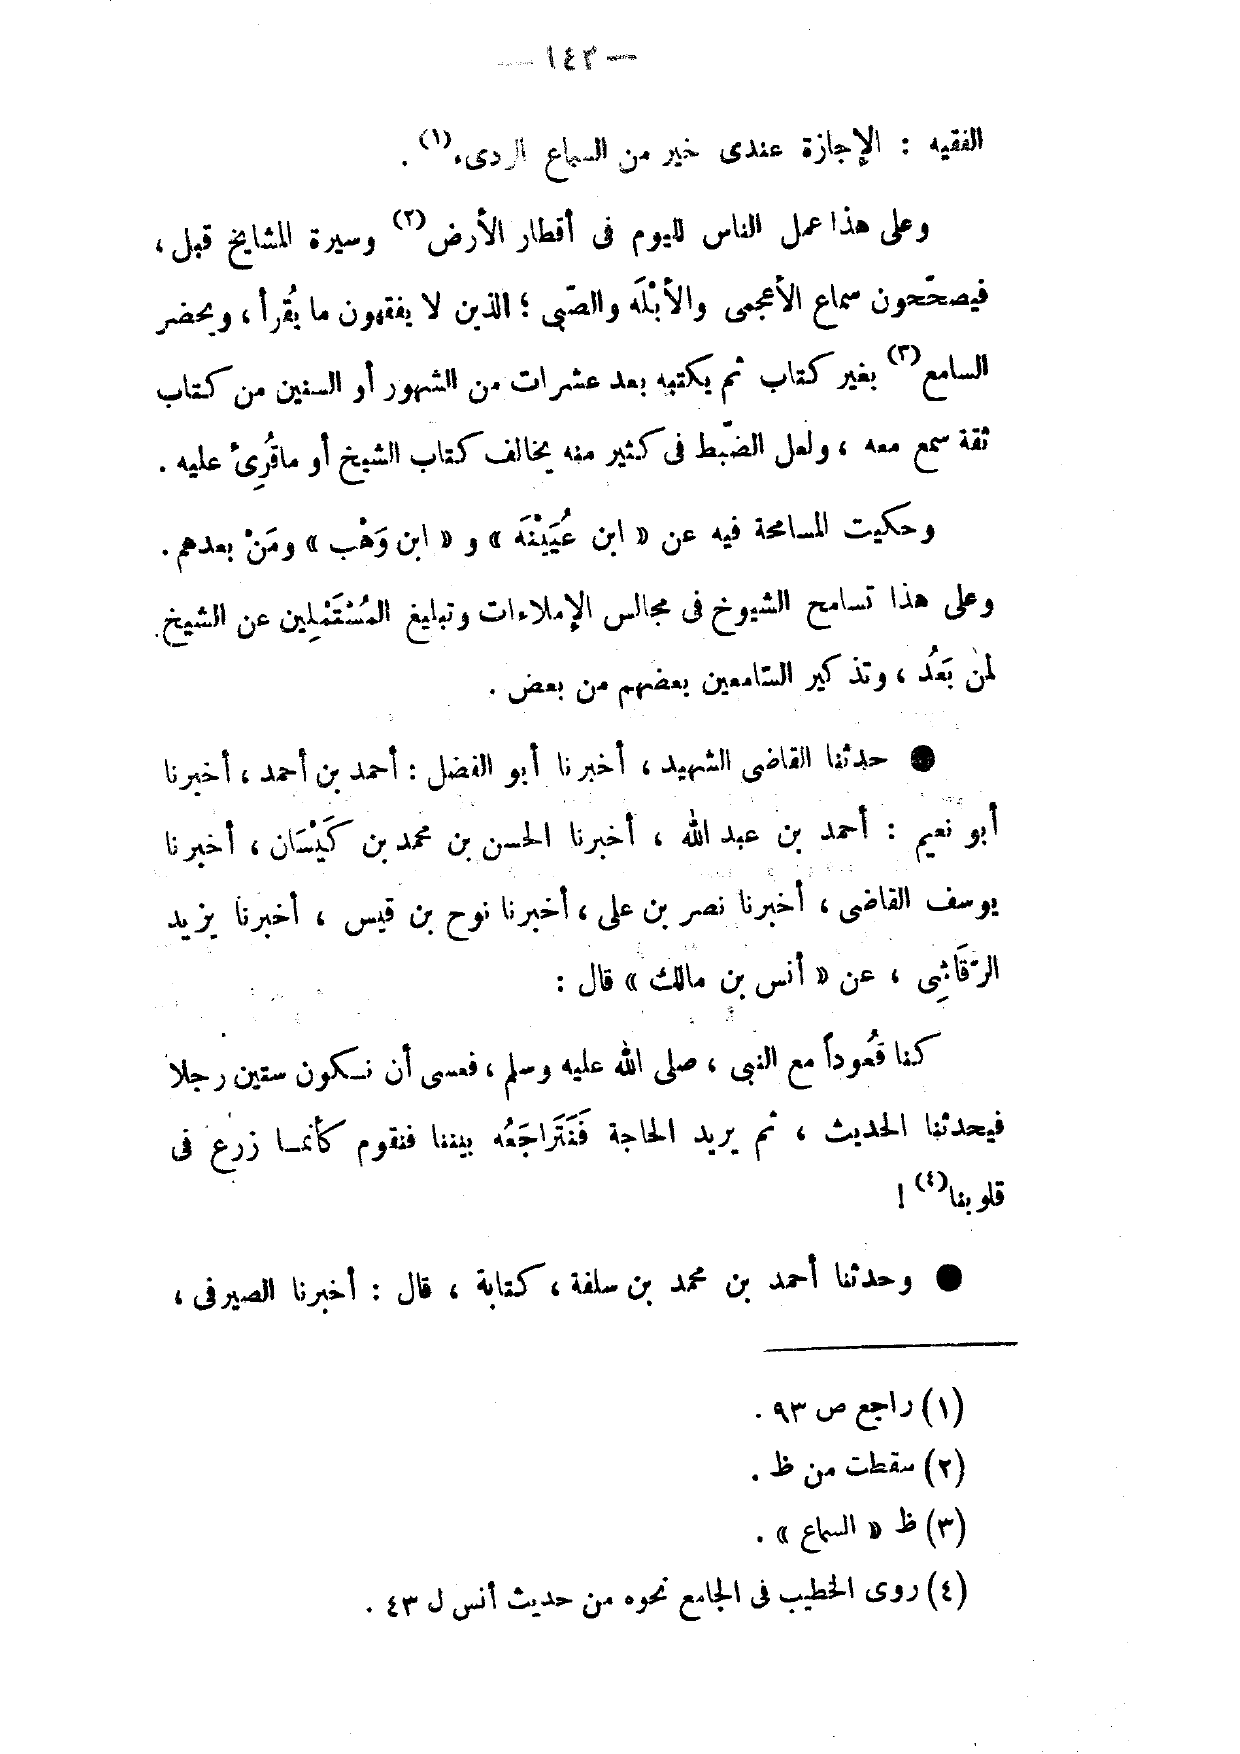 — ١٤٣ —
الفقيه : الإجازة عندى خير من السماع الردىء(١) .
وعلى هذا عمل الناس لليوم فى أقطار الأرض(٢) وسيرة المشايخ قبل ،
فيصحّحون سماع الأعجمى والأبْلَه والصّبى ؛ الذين لا يفقهون ما يُقرأ ، ويحضر
السامع(٣) بغير كتاب ثم يكتبه بعد عشرات من الشهور أو السنين من كتاب
ثقة سمع معه ، ولعل الضّبط فى كثير منه يخالف كتاب الشيخ أو ماقُرِئ عليه .
وحكيت المسامحة فيه عن « ابن عُيَيْنَة » و « ابن وَهْب » ومَنْ بعدهم .
وعلى هذا تسامح الشيوخ فى مجالس الإملاءات وتبليغ المُسْتَمْلِين عن الشيخ
لمن بَعُد ، وتذكير السّامعين بعضهم من بعض .
● حدثنا القاضى الشهيد ، أخبرنا أبو الفضل : أحمد بن أحمد ، أخبرنا
أبو نعيم : أحمد بن عبد الله ، أخبرنا الحسن بن محمد بن كَيْسَان ، أخبرنا
يوسف القاضى ، أخبرنا نصر بن على ، أخبرنا نوح بن قيس ، أخبرنا يزيد
الرّقَاشِى ، عن « أنس بن مالك » قال :
كنا قُعوداً مع النبى ، صلى الله عليه وسلم ، فعسى أن نكون ستين رجلا
فيحدثنا الحديث ، ثم يريد الحاجة فَنَتَرَاجَعُه بيننا فنقوم كأنما زرع فى
قلوبنا(٤) !
● وحدثنا أحمد بن محمد بن سلفة ، كتابة ، قال : أخبرنا الصيرفى ،
(١) راجع ص ٩٣ .
(٢) سقطت من ظ .
(٣) ظ « السماع » .
(٤) روى الخطيب فى الجامع نحوه من حديث أنس ل ٤٣ .